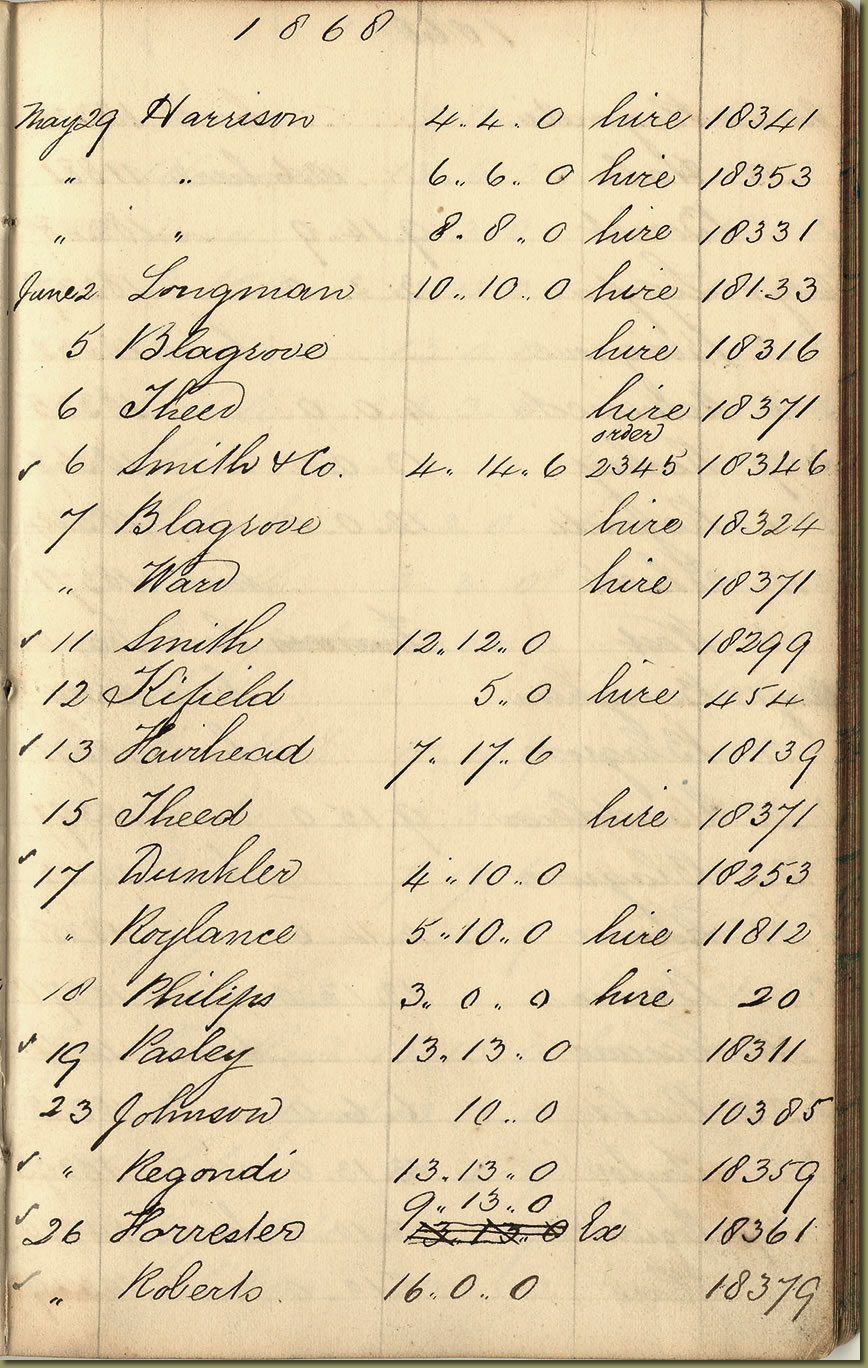 1868
May 29 Harrison 4.. 4.. 0 hire 18341
" " 6.. 6.. 0 hire 18353
" " 8.. 8.. 0 hire 18331
June 2 Longman 10.. 10.. 0 hire 18133
5 Blagrove hire 18316
6 Theed hire 18371
order
✓ 6 Smith & Co. 4.. 14.. 6 2345 18346
7 Blagrove hire 18324
" Ward hire 18371
✓ 11 Smith 12.. 12.. 0 18299
12 Kifield 5.. 0 hire 454
✓ 13 Fairhead 7.. 17.. 6 18139
15 Theed hire 18371
✓ 17 Dunkler 4.. 10.. 0 18253
" Roylance 5.. 10.. 0 hire 11812
18 Philips 3.. 0.. 0 hire 20
✓ 19 Pasley 13.. 13.. 0 18311
23 Johnson 10.. 0 10385
✓ " Regondi 13.. 13.. 0 18359
9.. 13.. 0
✓ 26 Forrester 13.. 13.. 0 Ex 18361
✓ " Roberts 16.. 0.. 0 18379